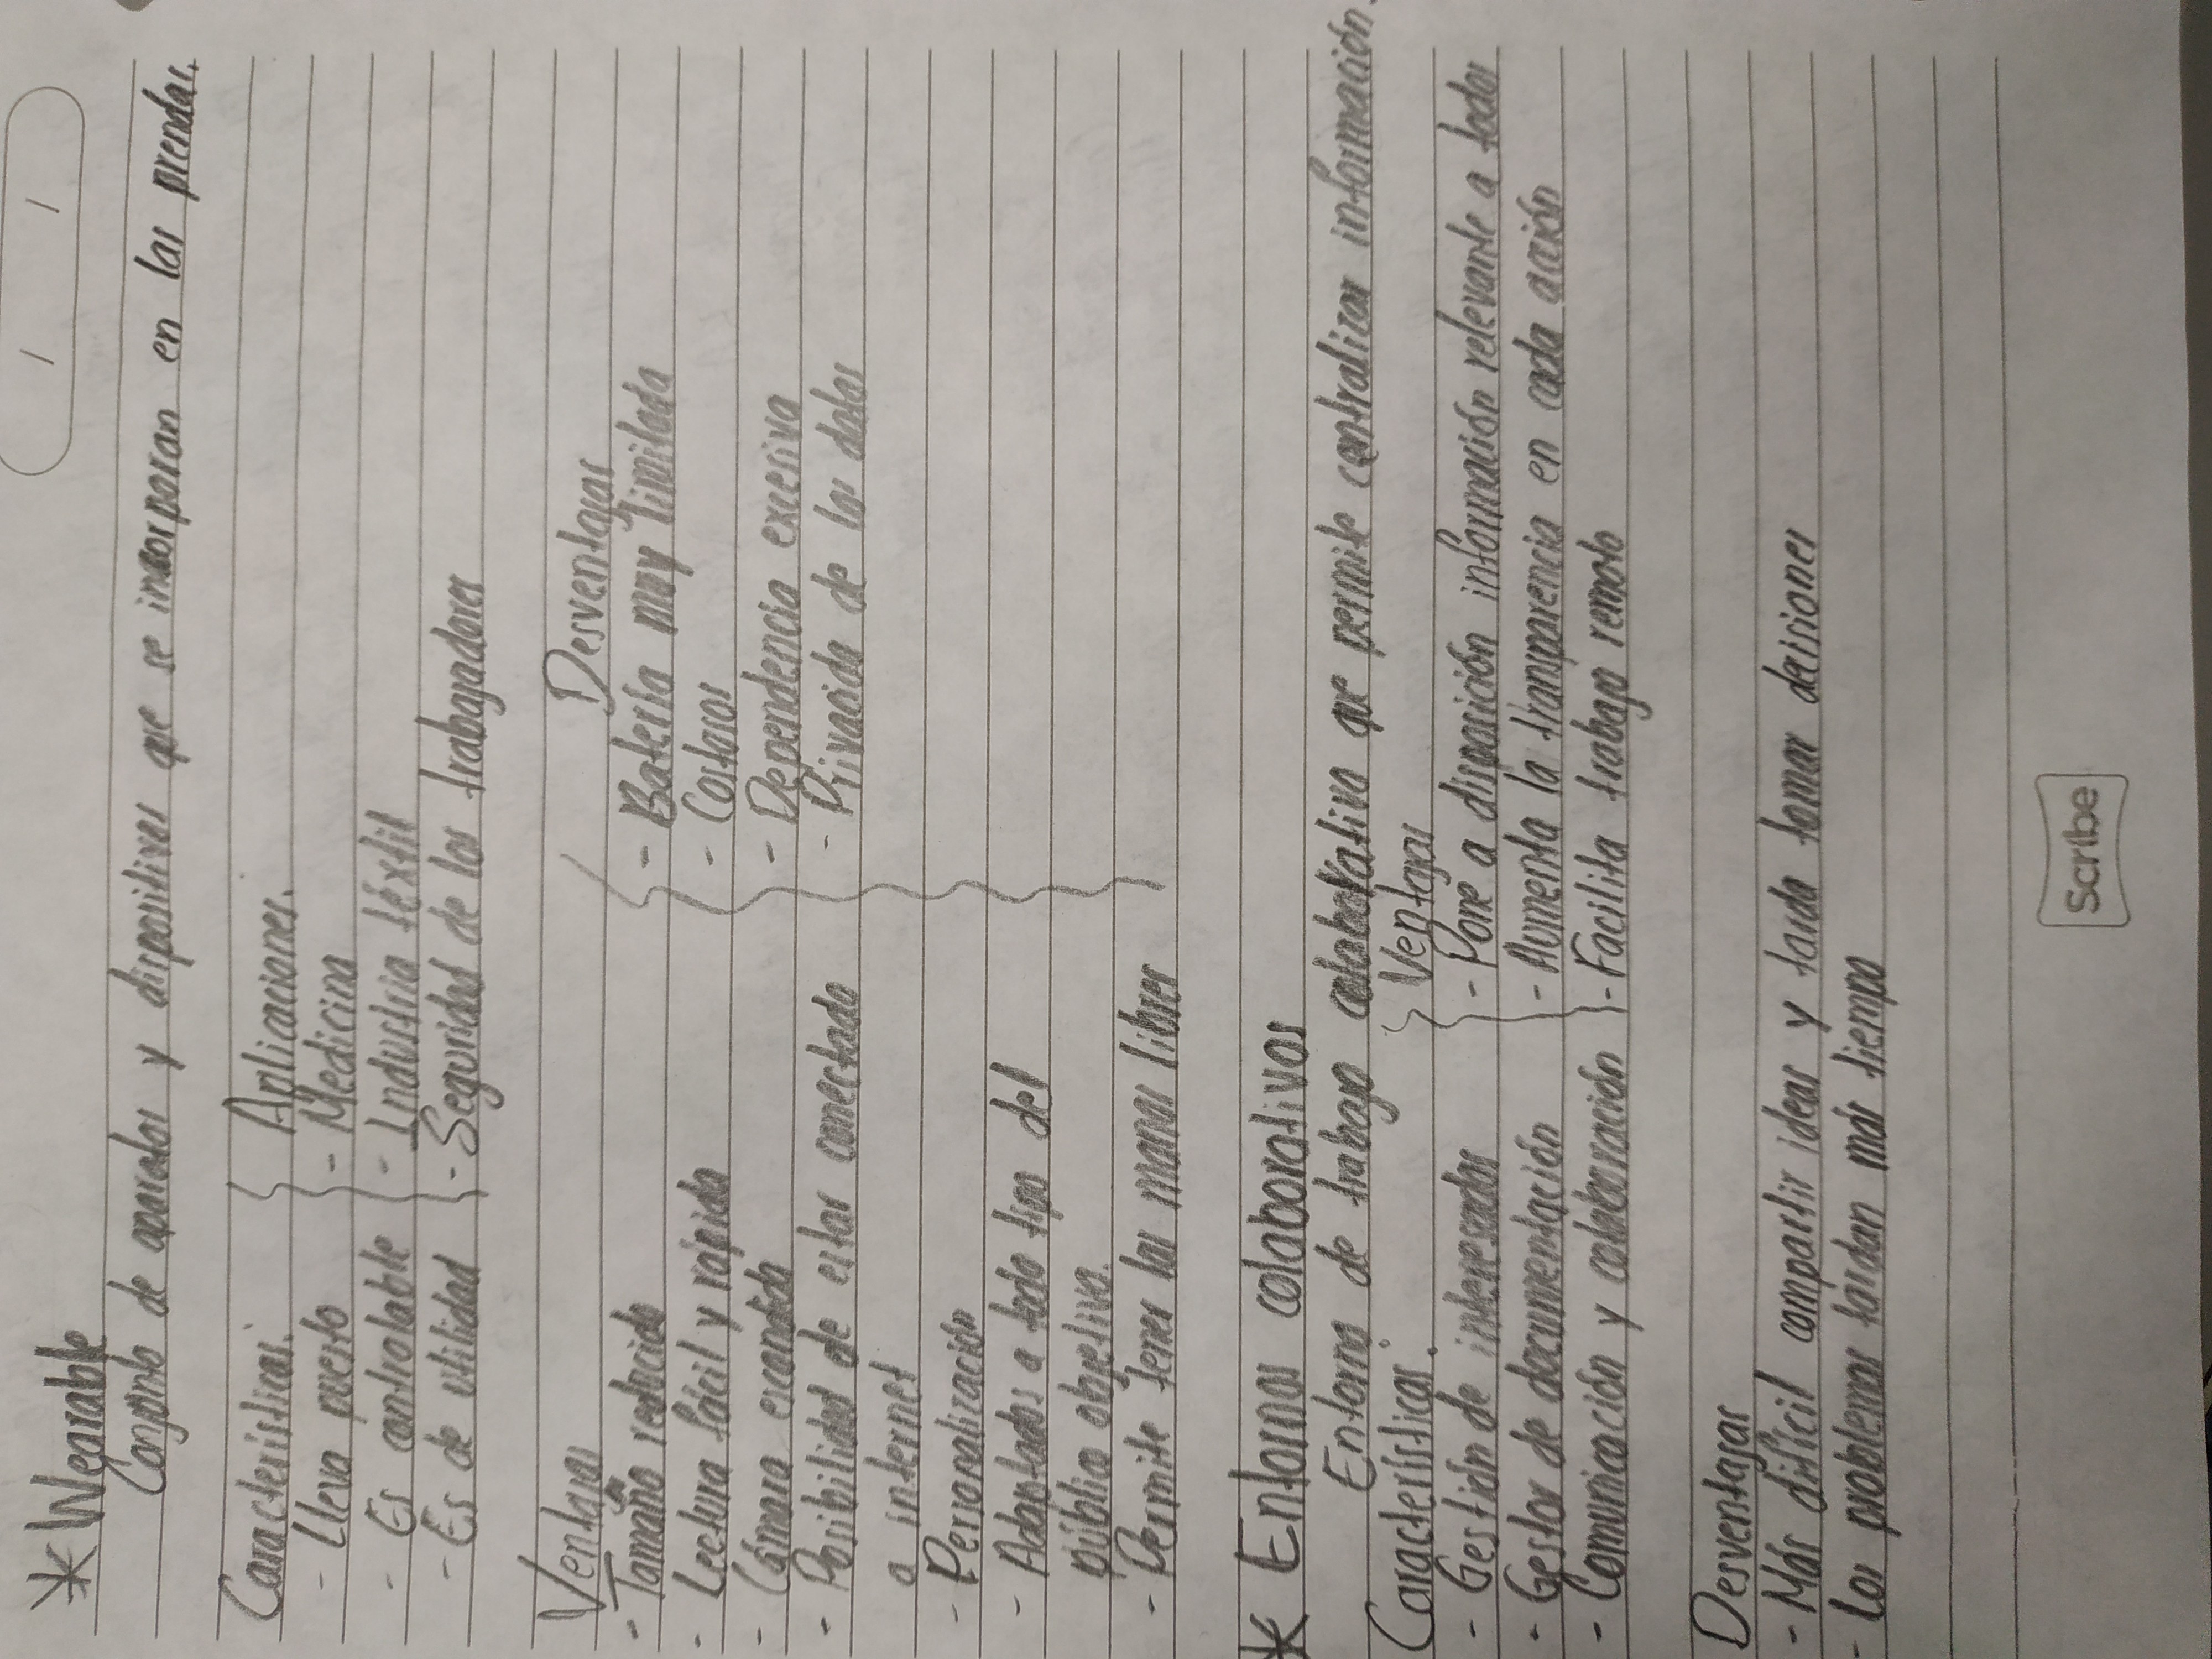 * Wearable
Conjunto de aparatos y dispositivos que se incorporan en las prendas.
Características.
- Lleva puesto
- Es controlable
- Es de utilidad
Aplicaciones.
- Medicina
- Industria téxtil
- Seguridad de los trabajadores
Ventajas
- Tamaño reducido
- Lectura fácil y rápida
- Cámara escondida
- Posibilidad de estar conectado
a internet
- Personalización
- Adaptados a todo tipo del
público objetivo.
- Permite tener las manos libres
Desventajas
- Batería muy limitada
- Costosos
- Dependencia excesiva
- Privacida de los datos
* Entornos colaborativos
Entorno de trabajo colaborativo que permite centralizar información.
Características.
- Gestión de interesados
- Gestor de documentación
- Comunicación y colaboración
Ventajas
- Pone a disposición información relevante a todos
- Aumenta la transparencia en cada acción
- Facilita trabajo remoto
Desventajas
- Más difícil compartir ideas y tarda tomar decisiones
- Los problemas tardan más tiempo
Scribe